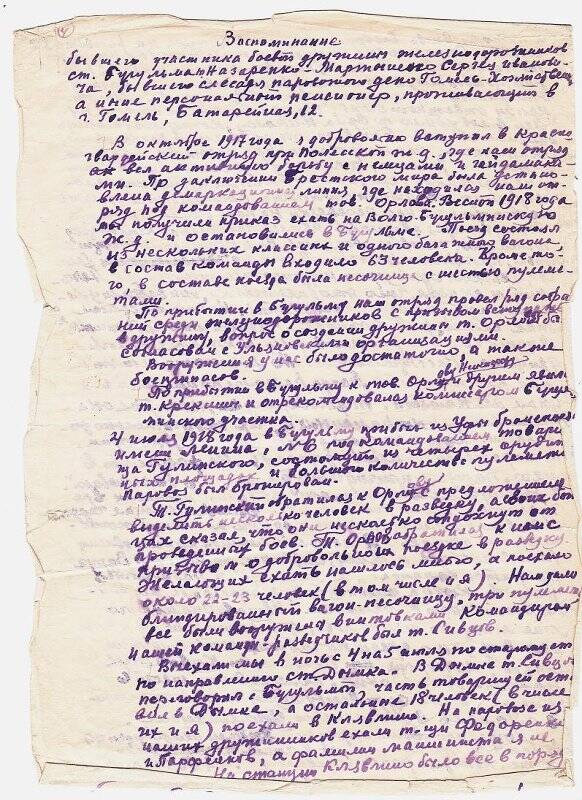 Воспоминание
бывшего участника боевой дружины железнодорожников
ст. Бугульма Назаренко-Мартыненко Сергея Иванови-
ча, бывшего слесаря паровозного депо Гомель-Хозяйствен.
а ныне персональный пенсионер, проживающий в
г. Гомель, Батарейная, 12.
В октябре 1917 года я добровольно вступил в Красно-
гвардейский отряд при Полесской ж.д., где наш отряд
вел активную борьбу с немцами и гайдамака-
ми. По заключении Брестского мира была уста-
влена демаркационная линия, где находился наш от-
ряд под командованием тов. Орлова. Весной 1918 года
мы получили приказ ехать на Волго-Бугульминскую
ж.д. и остановились в Бугульме. Поезд состоял
из нескольких классных и одного багажного вагона,
в состав команды входило 63 человека. Кроме то-
го, в составе поезда была песочница с шестью пулеме-
тами.
По прибытии в Бугульму наш отряд провел ряд собра-
ний среди железнодорожников с призывом
в дружину, вопрос о создании дружины т. Орлов был
согласован с организациями.
Вооружения у нас было достаточно, а также
боеприпасов.
По прибытии в Бугульму к тов. Орлову
т. Крекшин и отрекомендовался комиссаром Бугуль-
минского участка.
4 июля 1918 года в Бугульму прибыл из Уфы бронепоезд
имени Ленина, под командованием товари-
ща Гулинского, состоящий из четырех орудий-
ных площадок и большого количества пулеметов
Паровоз был бронирован.
Т. Гулинский обратился к Орлову с предложением
выделить несколько человек в разведку, а своих бой-
цах сказал, что они нисколько не отдохнут от
проведенных боев. Т. Орлов обратился к нам с
призывом о добровольной поездке в разведку.
Желающих ехать нашлось много, а поехало
около 22-23 человек (в том числе и я). Нам дали
блиндированный вагон-песочницу, три пулемета
все были вооружены винтовками. Командиром
нашей команды-разведчиков был т. Сивцов.
Выехали мы в ночь с 4 на 5 июля по старому ст.
по направлению ст. Дымка. В Дымке т. Сивцов
переговорил с Бугульмой, часть товарищей оста-
вил в Дымке, а остальные 18 человек (в числе
их и я) поехали в Клявлино. На паровозе из
наших дружинников ехали т-щи Федоренко
и Парфенков, а фамилии машиниста я не
На станции Клявлино было все в поряд-